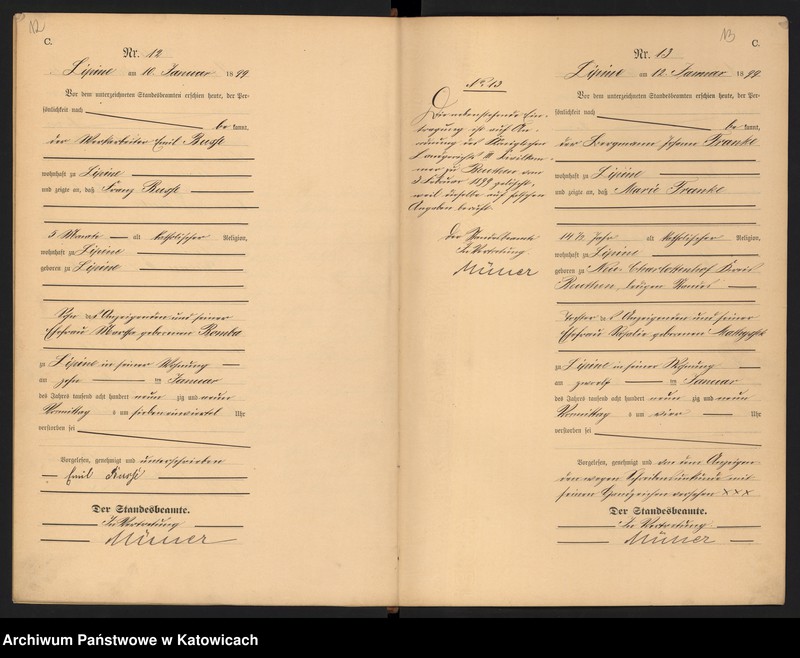 12
C.
Nr. 12
Lipine am 10. Januar 1899
Vor dem unterzeichneten Standesbeamten erschien heute, der Per-
sönlichkeit nach
be kannt,
der Werkarbeiter Emil
wohnhaft zu Lipine
und zeigte an, daß Franz
3 Monate alt katholischer Religion,
wohnhaft zu Lipine
geboren zu Lipine
Sohn des Anzeigenden und seiner
Ehefrau Martha geborenen Romba
zu Lipine in seiner Wohnung
am zehn ten Januar
des Jahres tausend acht hundert neun zig und neun
Vormittag s um sieben einviertel Uhr
verstorben sei
Vorgelesen, genehmigt und unterschrieben
Emil
Der Standesbeamte.
In Vertretung
Müller
No 13
Die nebenstehende Ein-
tragung ist auf An-
ordnung des Königlichen
Landgerichts II Zivilkam-
mer zu Beuthen vom
Februar 1899 gelöscht,
weil dieselbe auf falschen
Angaben beruht.
Der Standesbeamte
In Vertretung.
Müller
13
C.
Nr. 13
Lipine am 12. Januar 1899
Vor dem unterzeichneten Standesbeamten erschien heute, der Per-
sönlichkeit nach
be kannt,
der Bergmann Johann Franke
wohnhaft zu Lipine
und zeigte an, daß Marie Franke
14 ½ Jahr alt katholischer Religion,
wohnhaft zu Lipine
geboren zu Neu Charlottenhof Kreis
Beuthen, ledigen Standes
Tochter des Anzeigenden und seiner
Ehefrau Rosalie geborenen
zu Lipine in seiner Wohnung
am zwölf ten Januar
des Jahres tausend acht hundert neun zig und neun
Vormittag s um vier Uhr
verstorben sei
Vorgelesen, genehmigt und von dem Anzeigen-
den wegen Schreibensunkunde mit
seinem Handzeichen versehen XXX
Der Standesbeamte.
In Vertretung
Müller
Archiwum Państwowe w Katowicach